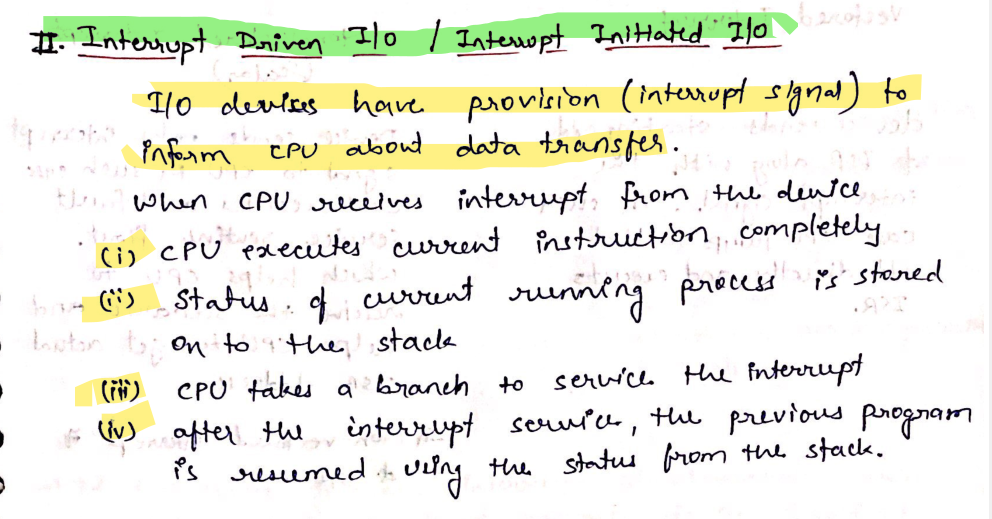 II. Interrupt Driven I/O / Interrupt Initiated I/O
I/O devices have provision (interrupt signal) to
inform CPU about data transfer.
when CPU receives interrupt from the device
(i) CPU executes current instruction completely
(ii) Status of current running process is stored
on to the stack
(iii) CPU takes a branch to service the interrupt
(iv) after the interrupt service, the previous program
is resumed using the status from the stack.